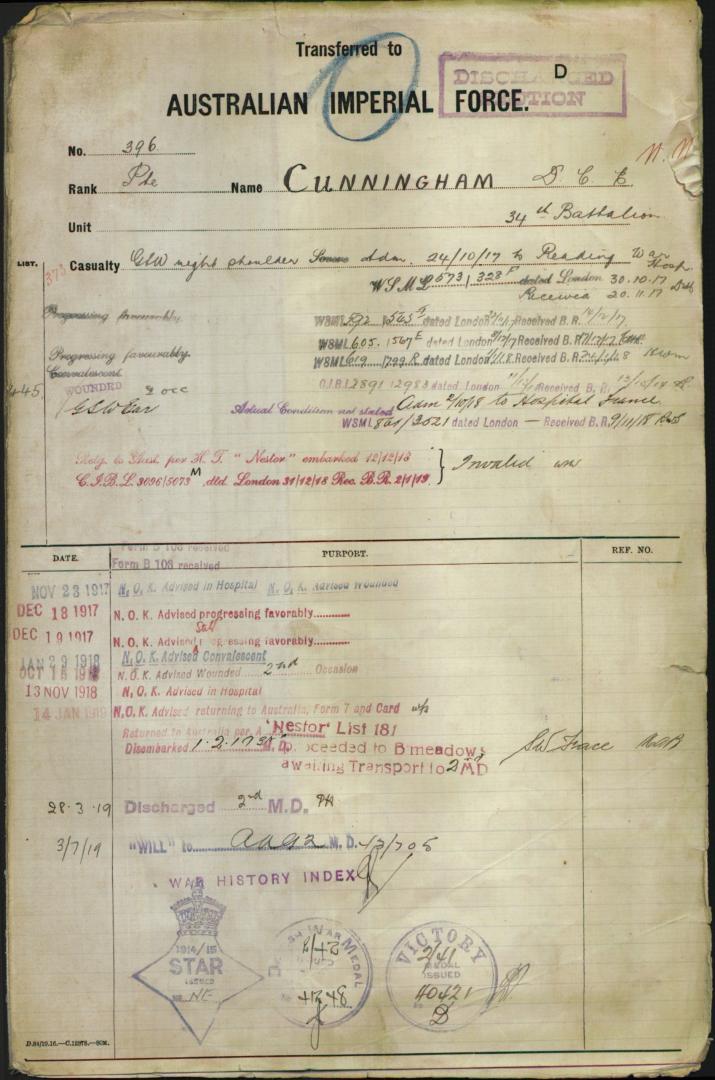 Transferred to
D
DISCHARGED
AUSTRALIAN IMPERIAL FORCE.
No. 396
Rank Pte Name CUNNINGHAM D C E
Unit 34th Battalion
LIST.
373
Casualty GSW right shoulder Severe Adm. 24/10/17 to Reading War Hosp
WSML 573/328 F dated London 30.10.17
Received 20.11.17
Progressing favourably WSML 592 dated London Received B.R. 14/12/17
WSML 605. 1567 E dated London Received B.R.
Progressing favourably. WSML 619 1799 R dated London Received B.R.
Convalescent
445 WOUNDED 2 occ O.I.B.L 2891 12983 dated London Received B.R.
GSW Ear Actual Condition not stated Adm 2/10/18 to Hospital France
WSML 861/3521 dated London — Received B.R. 9/11/18
Retg. to Aust. per H.T. "Nestor" embarked 12/12/18
C.I.B.L. 3096/5073 M dtd. London 31/12/18 Rec. B.R. 2/1/19. } Invalid
DATE. PURPORT. REF. NO.
Form B 103 received
Form B 103 received
NOV 23 1917 N.O.K. Advised in Hospital N.O.K. Advised Wounded
DEC 18 1917 N.O.K. Advised progressing favorably
DEC 19 1917 N.O.K. Advised Still progressing favorably
JAN 29 1918 N.O.K. Advised Convalescent
OCT 15 1918 N.O.K. Advised Wounded 2nd Occasion
13 NOV 1918 N.O.K. Advised in Hospital
14 JAN 1919 N.O.K. Advised returning to Australia, Form 7 and Card
Returned to Australia per 'Nestor' List 181
Disembarked 1.2.19 3 M.D. proceeded to Bmeadows
awaiting Transport to 2nd MD
28.3.19 Discharged 2nd M.D.
3/7/19 "WILL" to AAG2 M.D. 43/705
WAR HISTORY INDEX
1914/15
STAR
ISSUED
NO NE
BRITISH WAR MEDAL
VICTORY
MEDAL
ISSUED
40421
D
D.84/19.16.—C.12978.—50M.